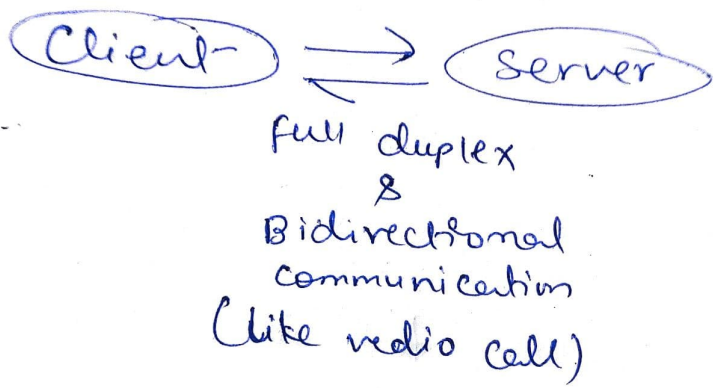 Client Server
full duplex
&
Bidirectional
communication
(like vedio call)